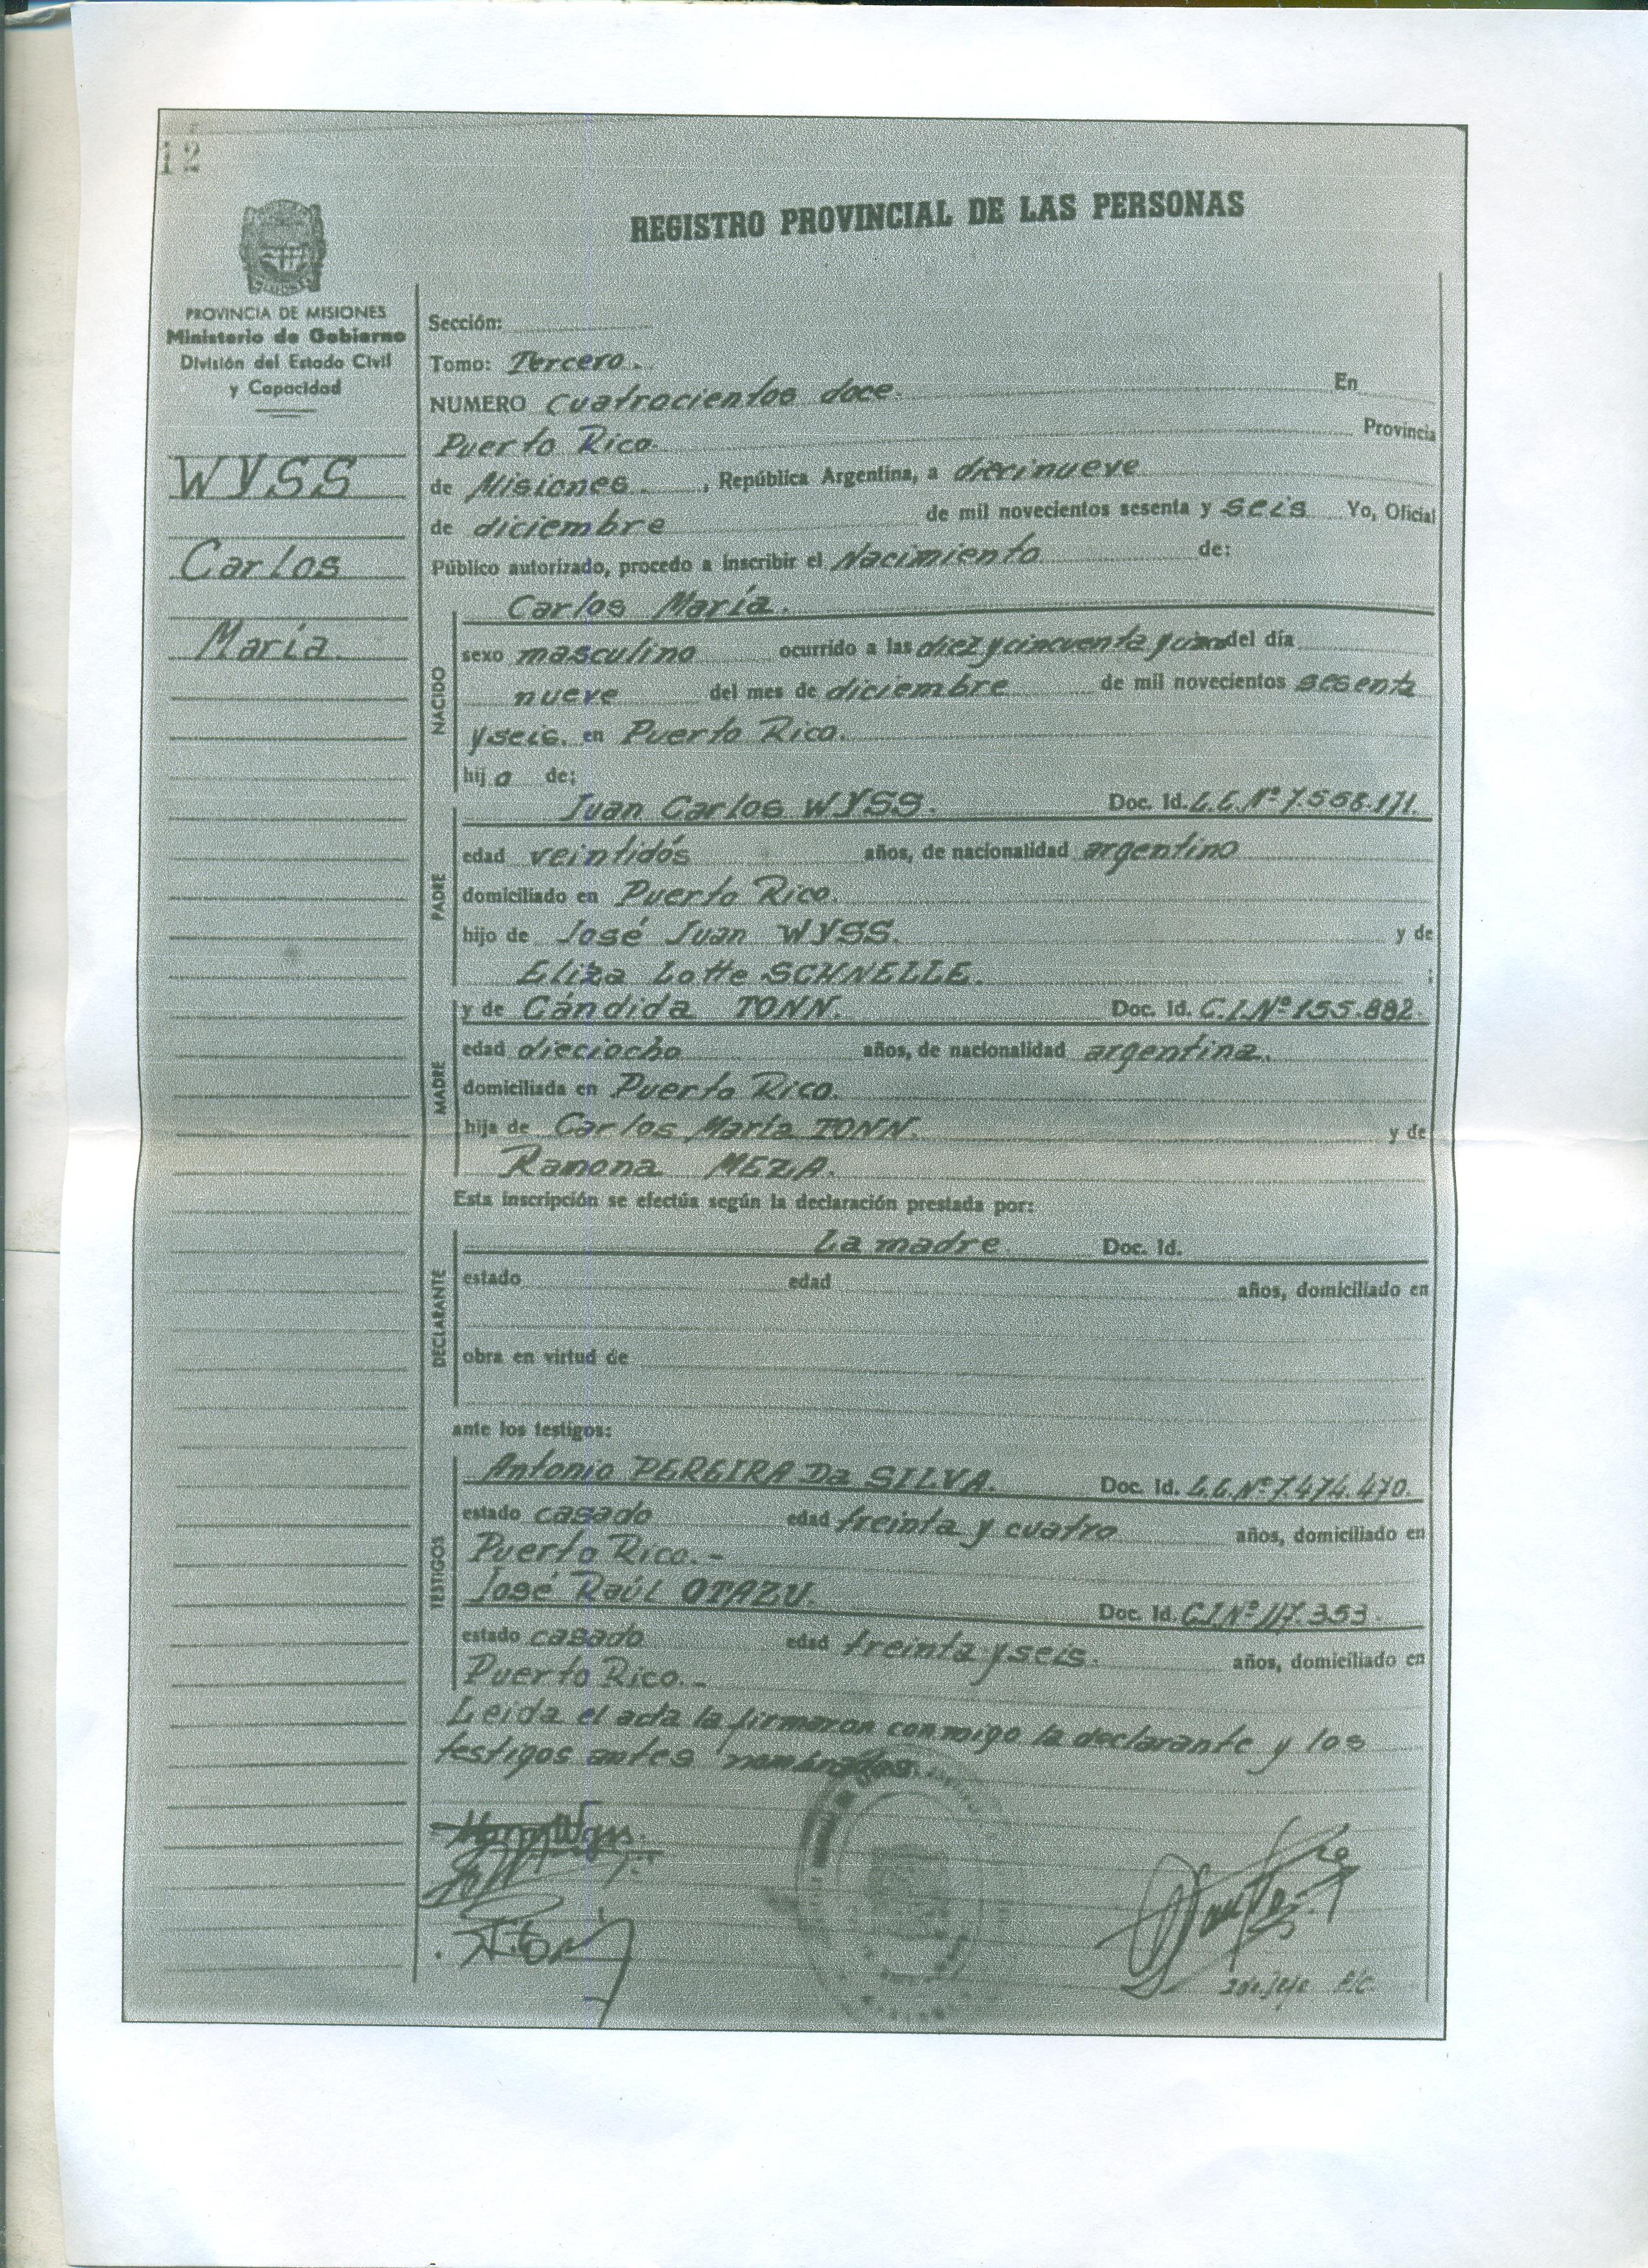 12
REGISTRO PROVINCIAL DE LAS PERSONAS
PROVINCIA DE MISIONES
Ministerio de Gobierno
División del Estado Civil
y Capacidad
WYSS
Carlos
María.
Sección:
Tomo: Tercero.
NUMERO cuatrocientos doce. En
Puerto Rico. Provincia
de Misiones. , República Argentina, a diecinueve
de diciembre de mil novecientos sesenta y seis Yo, Oficial
Público autorizado, procedo a inscribir el Nacimiento de:
NACIDO
Carlos María.
sexo masculino ocurrido a las diez y cincuenta y del día
nueve del mes de diciembre de mil novecientos sesenta
y seis. en Puerto Rico.
hijo de:
PADRE
Juan Carlos WYSS. Doc. Id. L.E. Nº 7.558.171.
edad veintidós años, de nacionalidad argentino
domiciliado en Puerto Rico.
hijo de José Juan WYSS. y de
Eliza Lotte SCHNELLE. ;
MADRE
y de Cándida TONN. Doc. Id. C.I. Nº 155.882.
edad dieciocho años, de nacionalidad argentina.
domiciliada en Puerto Rico.
hija de Carlos María TONN. y de
Ramona MEZA.
Esta inscripción se efectúa según la declaración prestada por:
DECLARANTE
La madre. Doc. Id.
estado edad años, domiciliado en
obra en virtud de
ante los testigos:
TESTIGOS
Antonio PEREIRA Da SILVA. Doc. Id. L.E. Nº 7.474.470.
estado casado edad treinta y cuatro años, domiciliado en
Puerto Rico.-
José Raúl OTAZU. Doc. Id. C.I. Nº 117.353.
estado casado edad treinta y seis. años, domiciliado en
Puerto Rico.-
Leída el acta la firmaron conmigo la declarante y los
testigos antes nombrados.